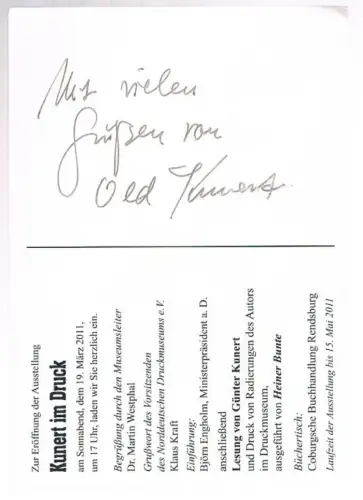 Mit vielen
Grüßen von
Old Kunert.
Zur Eröffnung der Ausstellung
Kunert im Druck
am Sonnabend, dem 19. März 2011,
um 17 Uhr, laden wir Sie herzlich ein.
Begrüßung durch den Museumsleiter
Dr. Martin Westphal
Grußwort des Vorsitzenden
des Norddeutschen Druckmuseums e. V.
Klaus Kraft
Einführung:
Björn Engholm, Ministerpräsident a. D.
anschließend
Lesung von Günter Kunert
und Druck von Radierungen des Autors
im Druckmuseum,
ausgeführt von Heiner Bunte
Büchertisch:
Coburgsche Buchhandlung Rendsburg
Laufzeit der Ausstellung bis 15. Mai 2011